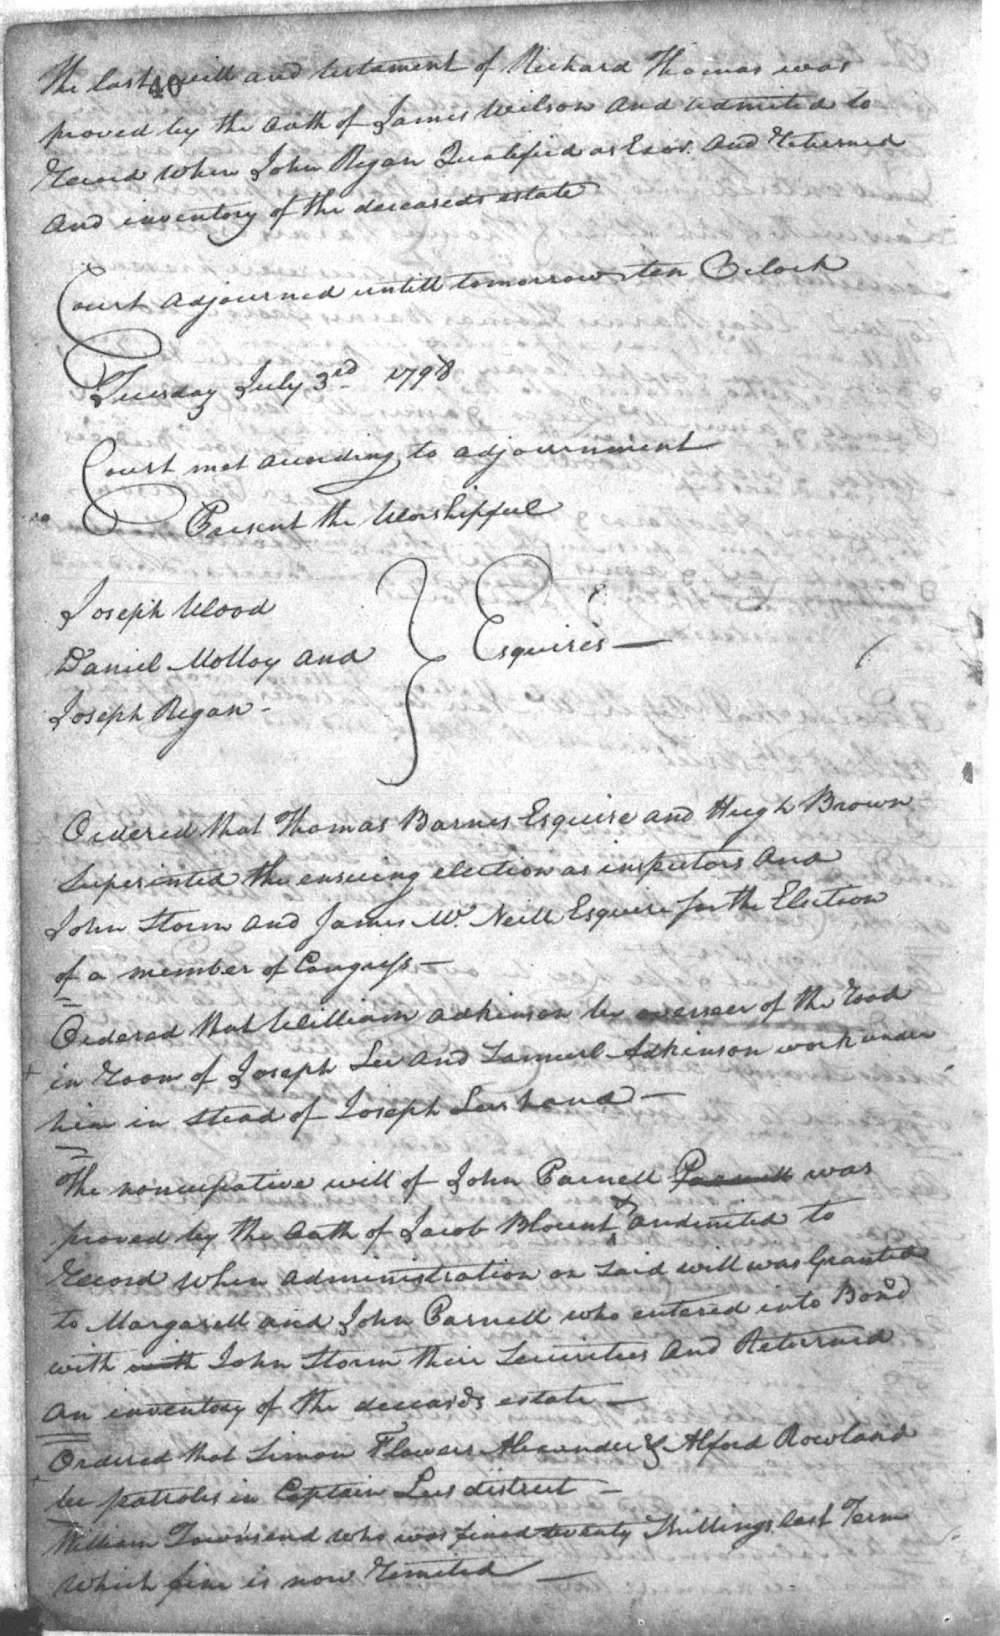 The last will and testament of Richard Thomas was
40
proved by the Oath of James Wilson and admited to
Record when John Regan Qualified as Exor. And Returned
And inventory of the deceaseds estate
Court Adjourned untill tomorrow ten Oclock
Tuesday July 3rd 1798
Court met according to adjournment
Present the Worshipful
Joseph Wood
Daniel Molloy and
Joseph Regan -
Esquires —
Ordered that Thomas Barnes Esquire and Hugh Brown
Superinted the ensuing election as inspectors And
John Storm and James Mc. Neill Esquire for the Election
of a member of Congress —
Ordered that William Adkinson be overseer of the road
in room of Joseph Lee and Samuel Adkinson work under
him in stead of Joseph Lees hand —
The noncupative will of John Parnell Parnell was
proved by the Oath of Jacob Blount and
Record when administration on said will was Granted
to Margarett and John Parnell who entered into Bond
with with John Storm their Securities And Returned
An inventory of the deceaseds estate —
Ordered that Simon Flowers Alexander & Alford Rowland
be patroles in Captain Lees district —
William Townsend who was fined twenty Shillings last Term
which fine is now Remited —